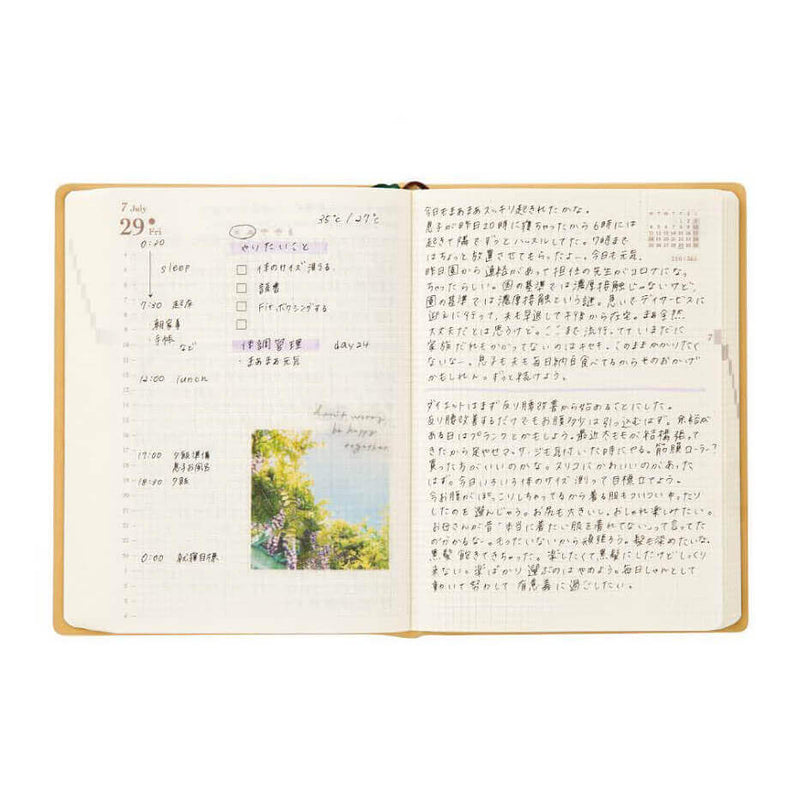 7 July
29 Fri
35℃ / 27℃
0:20
sleep
7:30 起床
朝家事
手帳
など
12:00 lunch
17:00 夕飯準備
息子お風呂
18:30 夕飯
0:00 就寝目標
やりたいこと
体のサイズ測る
読書
Fit ボクシングする
体調管理 day24
・まあまあ元気
don't worry,
be happy
together
210/365
今日もまあまあスッキリ起きれたかな。
息子が昨日20時に寝ちゃったから6時には
起きて隣でずっとハッスルしてた。7時まで
はちょっと放置させてもらったよー。今日も元気。
昨日園から連絡があって担任の先生がコロナになっ
ちゃったらしい。国の基準では濃厚接触じゃないけど、
園の基準では濃厚接触という謎。急いでデイサービスに
迎えに行って、夫も早退して午後から在宅。まあ全然
大丈夫だとは思うけど。ここまで流行ってていまだに
家族だれもかかってないのはキセキ。このままかかりたく
ないなー。息子も夫も毎日納豆食べてるからそのおかげ
かもしれん。ずっと続けよう。
ダイエットはまず反り腰改善から始めることにした。
反り腰改善するだけでもお腹多少は引っ込むはず。余裕が
ある日はプランクとかもしよう。最近太ももが結構張って
きたから足やせマッサージも気付いた時にやる。筋膜ローラー?
買った方がいいのかな。スリコにかわいいのがあった
はず。今日いろいろ体のサイズ測って目標立てよう。
今お腹がぽっこりしちゃってるから着る服もついついゆったり
したのを選んじゃう。お尻も大きいし。おしゃれ楽しみたい。
お母さんが昔"本当に着たい服を着れてない"って言ってた
のがわかるなー。もったいないから頑張ろう。髪も染めたいな、
黒髪飽きてきちゃった。楽したくて黒髪にしたけどしっくり
来ない。楽ばかり選ぶのはやめよう。毎日しゃんとして
動いて努力して有意義に過ごしたい。